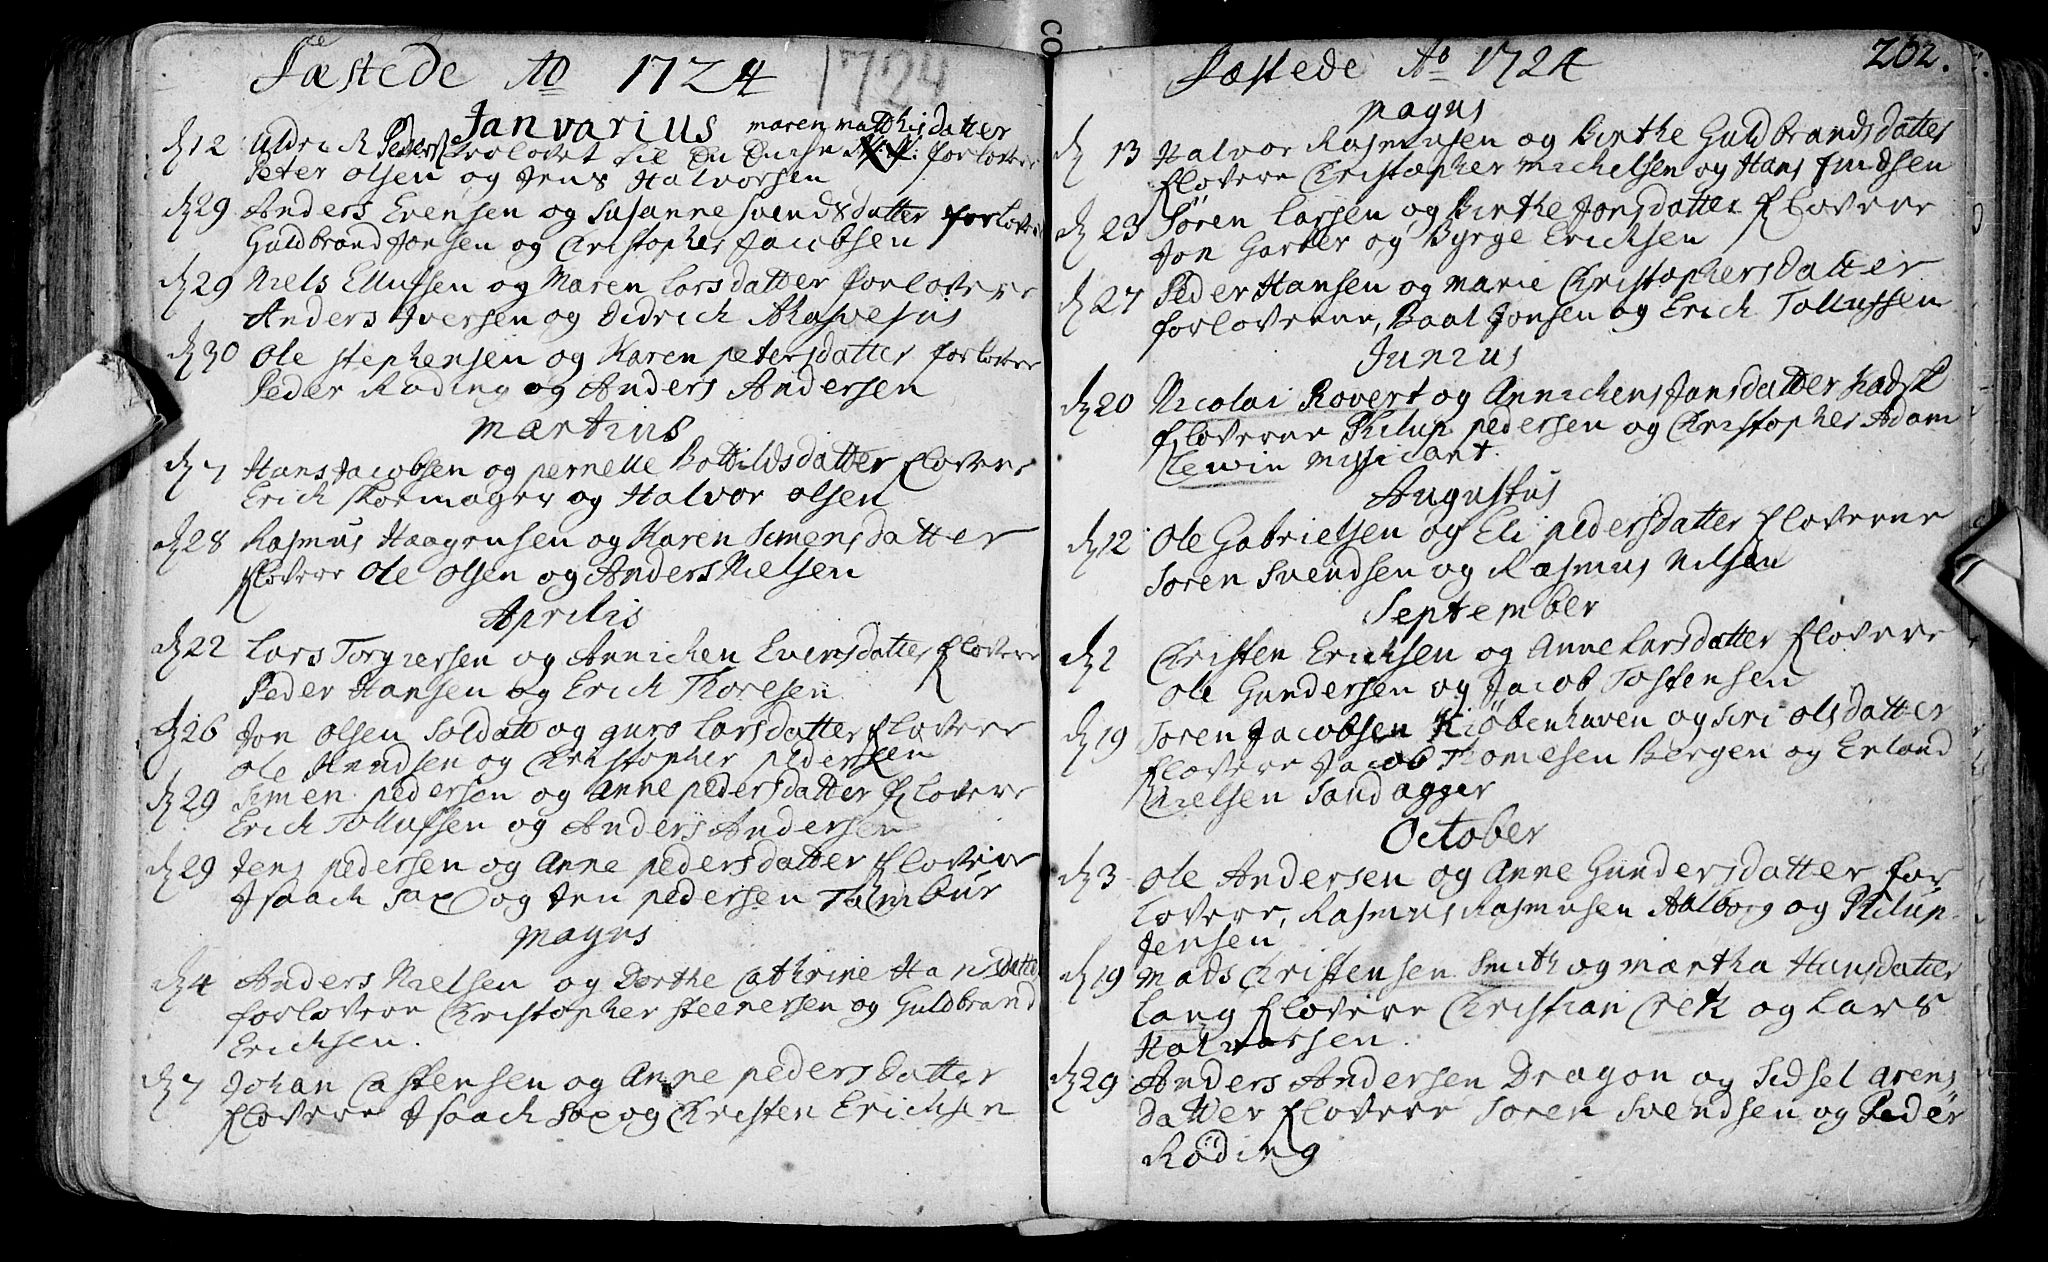 Fæstede Ao 1724 1724
Janvarius maren matthisdatter
d 12 Uldrich Peders trolovet til En Enche N: N: forlovere
Peter Olsen og Jens Halvorsen
d 29 Anders Evensen og Susanne Svendsdatter forlovere
Guldbrand Jonsen og Christopher Jacobsen
d 29 Niels Ellufsen og Maren Larsdatter forlovere
Anders Iversen og Didrich
d 30 Ole Stephensen og Karen petersdatter forlovere
Peder Röding og Anders Andersen
Martius
d 7 Hans Jacobsen og pernelle Bottildsdatter flovere
Erich Skoemager og Halvor Olsen
d 28 Rasmus Haagensen og Karen Simensdatter
flovere Ole Olsen og Anders Nielsen
Aprilis
d 22 Lars Torgiersen og Annichen Evensdatter flovere
Peder Hansen og Erich Thoresen
d 26 Jon Olsen Soldatt og guro Larsdatter flovere
Ole Knudsen og Christopher pedersen
d 29 Simen pedersen og Anne pedersdatter flovere
Erich Tollufsen og Anders Andersen
d 29 Jens pedersen og Anne pedersdatter flovere
Isaach Sax og Jen pedersen Tambur
Mayus
d 4 Anders Nielsen og Dorthe Cathrine Hansdatter
forlovere Christopher Steenersen og Guldbrand
Erichsen.
d 7 Johan Castensen og Anne pedersdatter
flovere Isaach Sax og Christen Erichsen
Fæstede Ao 1724 202.
Mayus
d 13 Halvor Rasmusen og Birthe Guldbrandsdatter
flovere Christopher Michelsen og Hans Knudsen
d 23 Sören Larsen og Birthe Jonsdatter flovere
Jon Garber og Byrge Ericksen
d 27 Peder Hansen og Marie Christophersdatter
forlovere, Boal Jonsen og Erich Tollufssen
Junius
d 20 Nicolai Rovert og Annichen Jansdatter
flovere Philup pedersen og Christopher Adam
Lewin Musicant.
Augustus
d 12 Ole Gabrielsen og Eli pedersdatter flovere
Sören Svendsen og Rasmus Nilsen
September
d 2 Christen Erichsen og Anne Larsdatter flovere
Ole Gundersen og Jacob Tostensen
d 19 Sören Jacobsen Kiöbenhaven og Siri Olsdatter
flovere Jacob Thomesen Bergen og Erland
Nielsen Sandager
October
d 3 Ole Andersen og Anne Gundersdatter for
lovere, Rasmus Rasmusen Aalborg og Philup
Jensen
d 19 Mads Christensen Smith og Martha Hansdatter
Lang flovere Christian og Lars
Halvorsen.
d 29 Anders Andersen Dragon og Sidsel arens
datter flovere Sören Svendsen og Peder
Röding